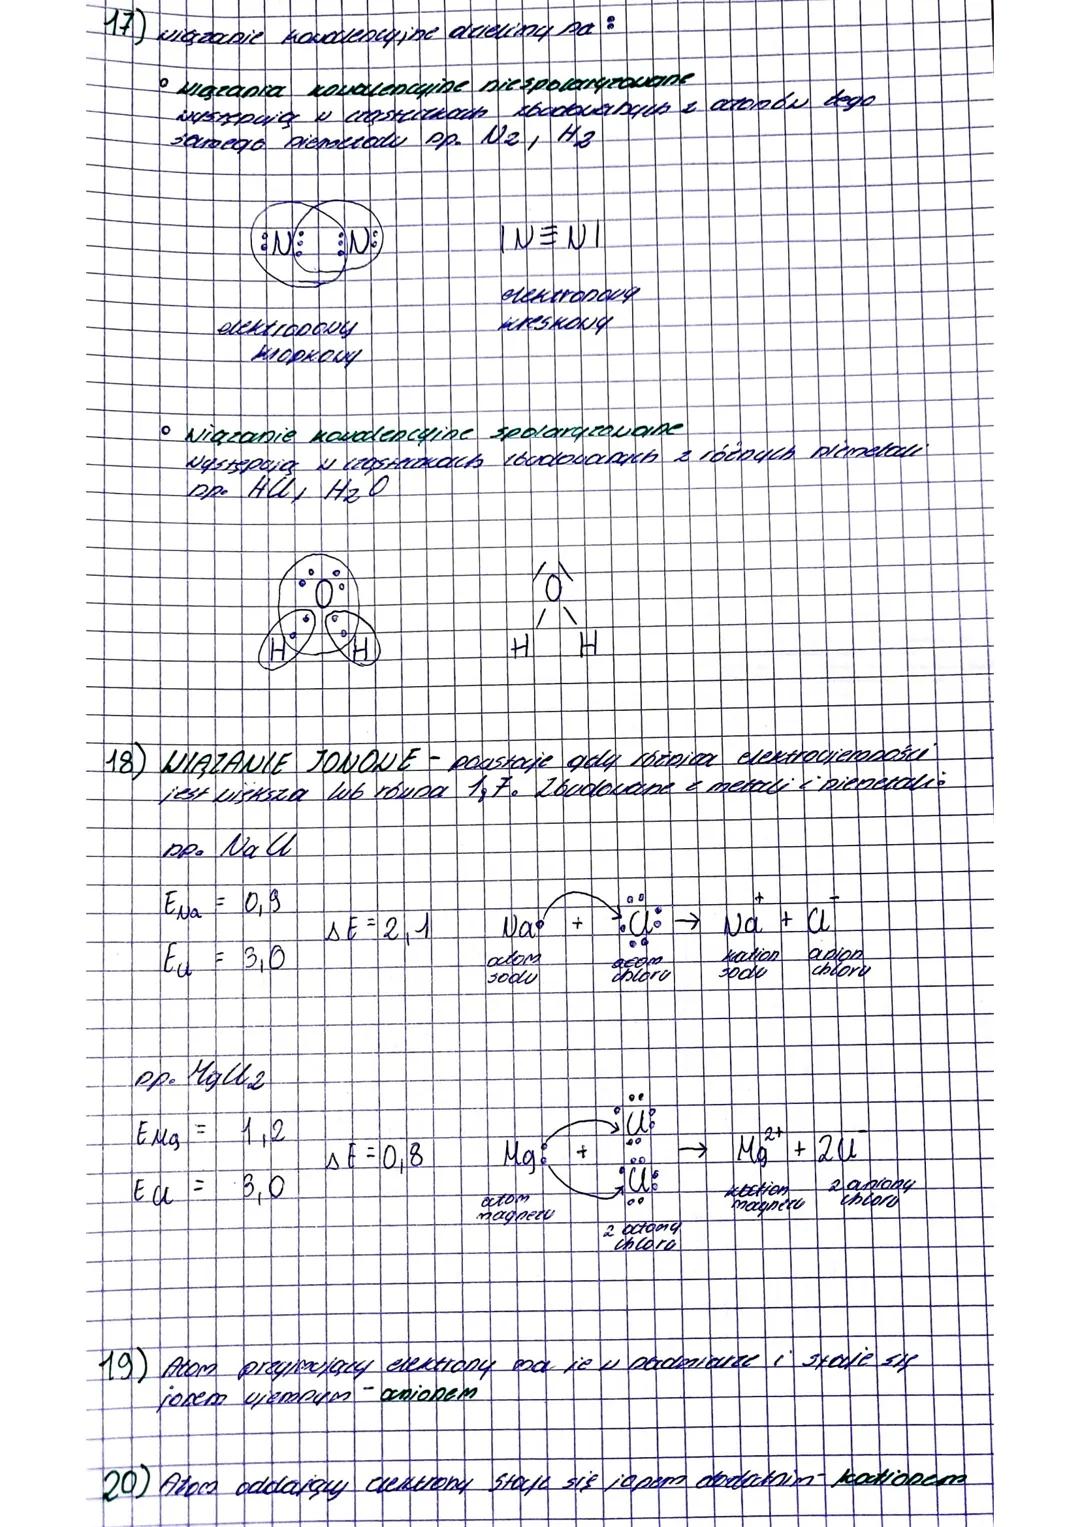 17) wiązanie kowalencyjne dzielimy na :
° wiązania kowalencyjne niespolaryzowane
występują w cząsteczkach zbudowanych z atomów tego
samego niemetalu np. N2, H2
N N
|N≡N|
elektronowy
kreskowy
elektronowy
kropkowy
° wiązanie kowalencyjne spolaryzowane
występują w cząsteczkach zbudowanych z różnych niemetali
np. HCl, H2O
O
H H
O
H H
18) WIĄZANIE JONOWE - powstaje gdy różnica elektroujemności
jest większa lub równa 1,7. Zbudowane z metali i niemetali:
np. NaCl
ENa = 0,9
ECl = 3,0
ΔE = 2,1
Na + Cl → Na+ + Cl-
atom sodu
atom chloru
kation sodu
anion chloru
np. MgCl2
EMg = 1,2
ECl = 3,0
ΔE = 0,8
Cl
Mg + → Mg2+ + 2Cl-
Cl
atom magnezu
2 atomy chloru
kation magnezu
2 aniony chloru
19) Atom przyjmujący elektrony ma je w nadmiarze i staje się
jonem ujemnym - anionem
20) Atom oddający elektrony staje się jonem dodatnim - kationem